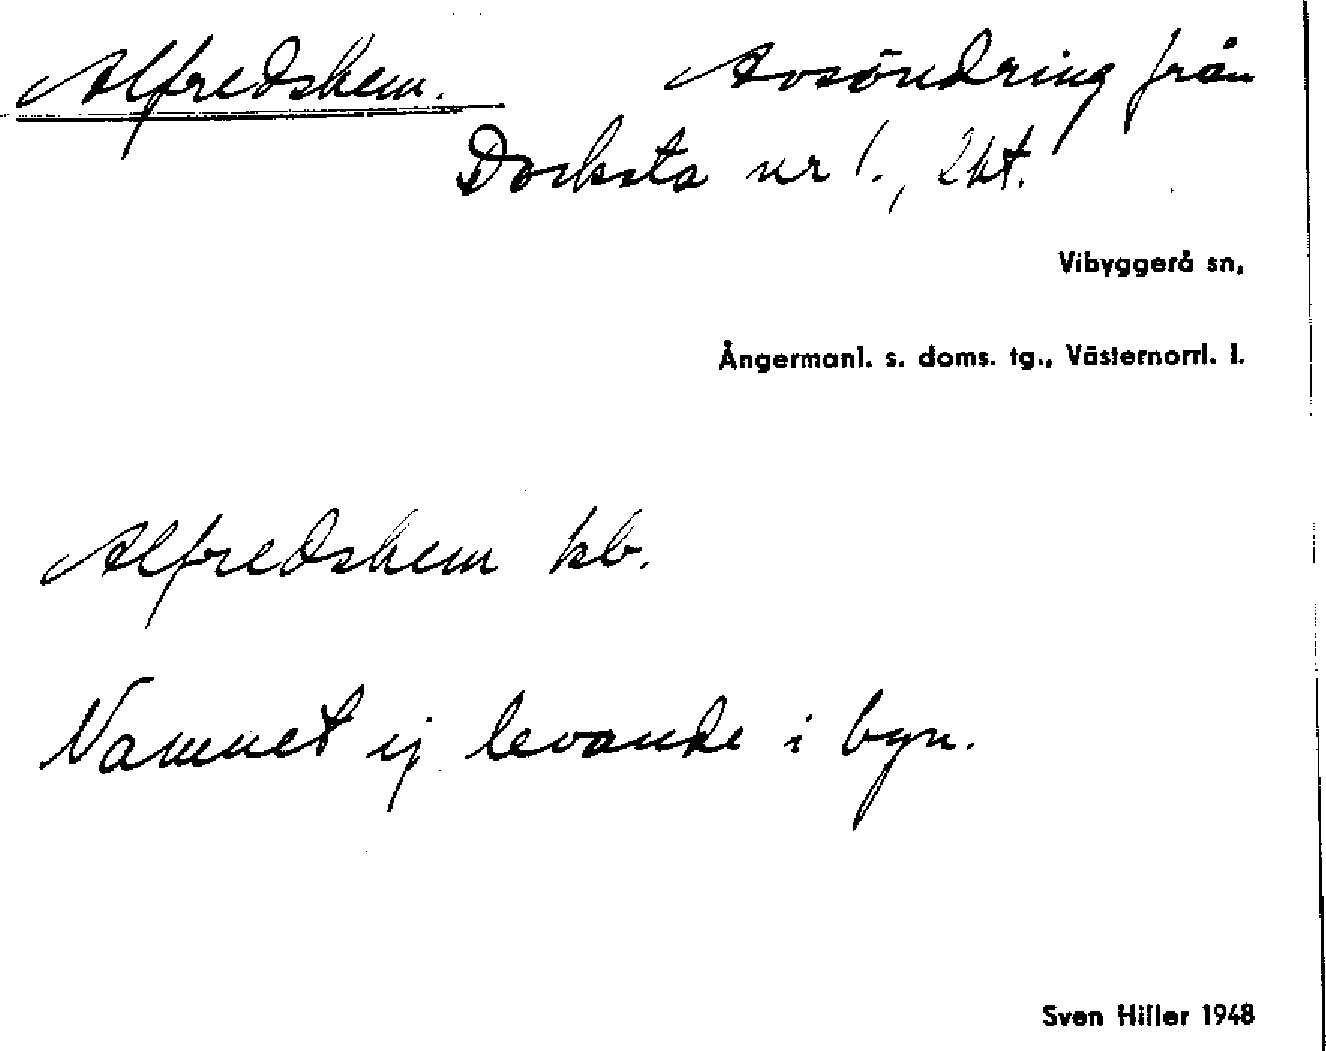 Alfredshem. Avsöndring från
Docksta nr 1., 2kt.
Vibyggerå sn,
Ångermanl. s. doms. tg., Västernorrl. l.
Alfredshem kb.
Namnet ej levande i byn.
Sven Hiller 1948